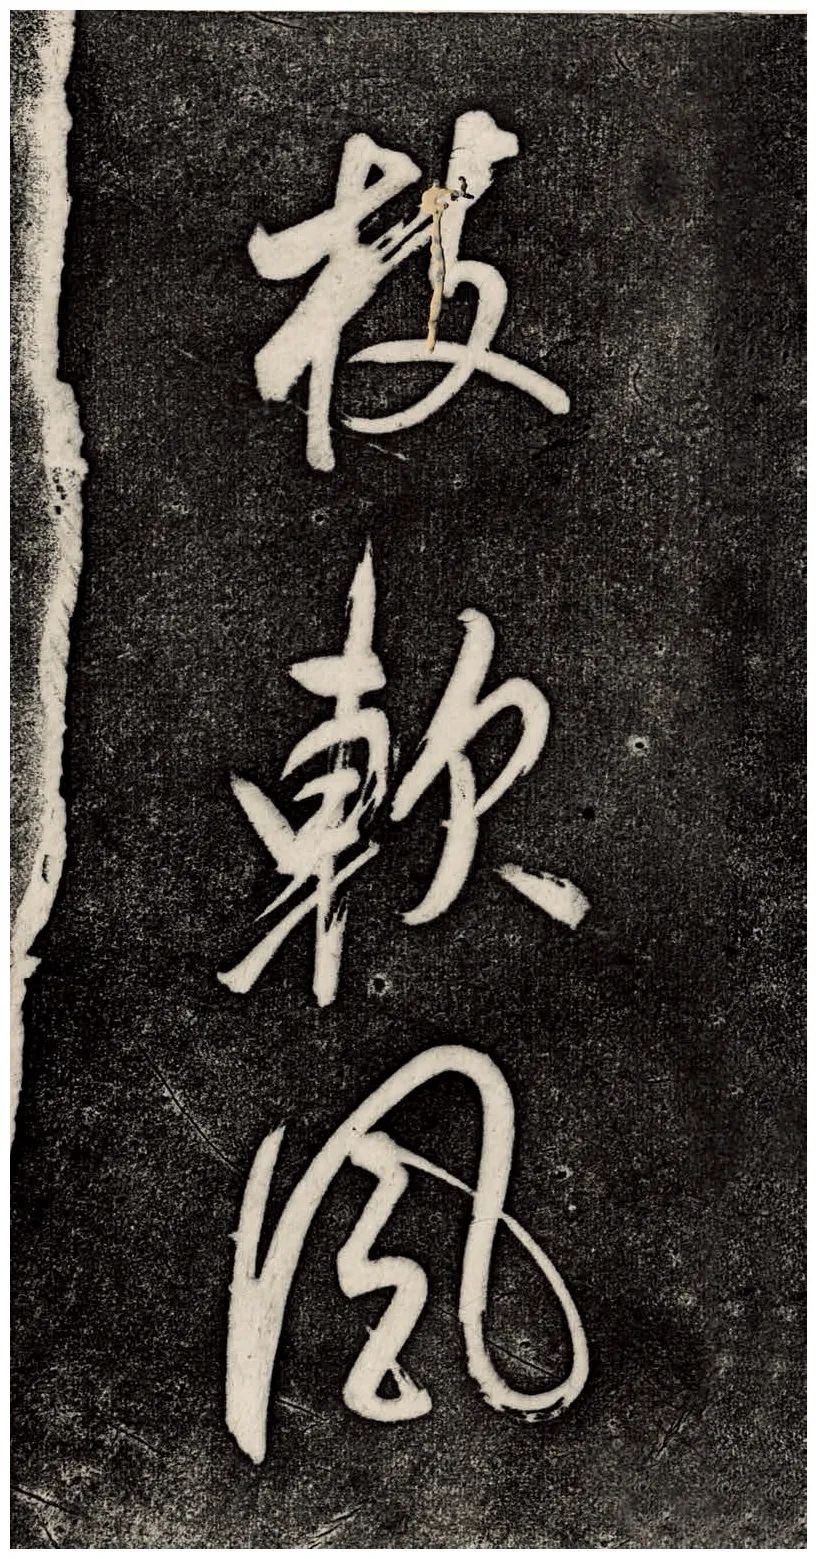 枝軟風